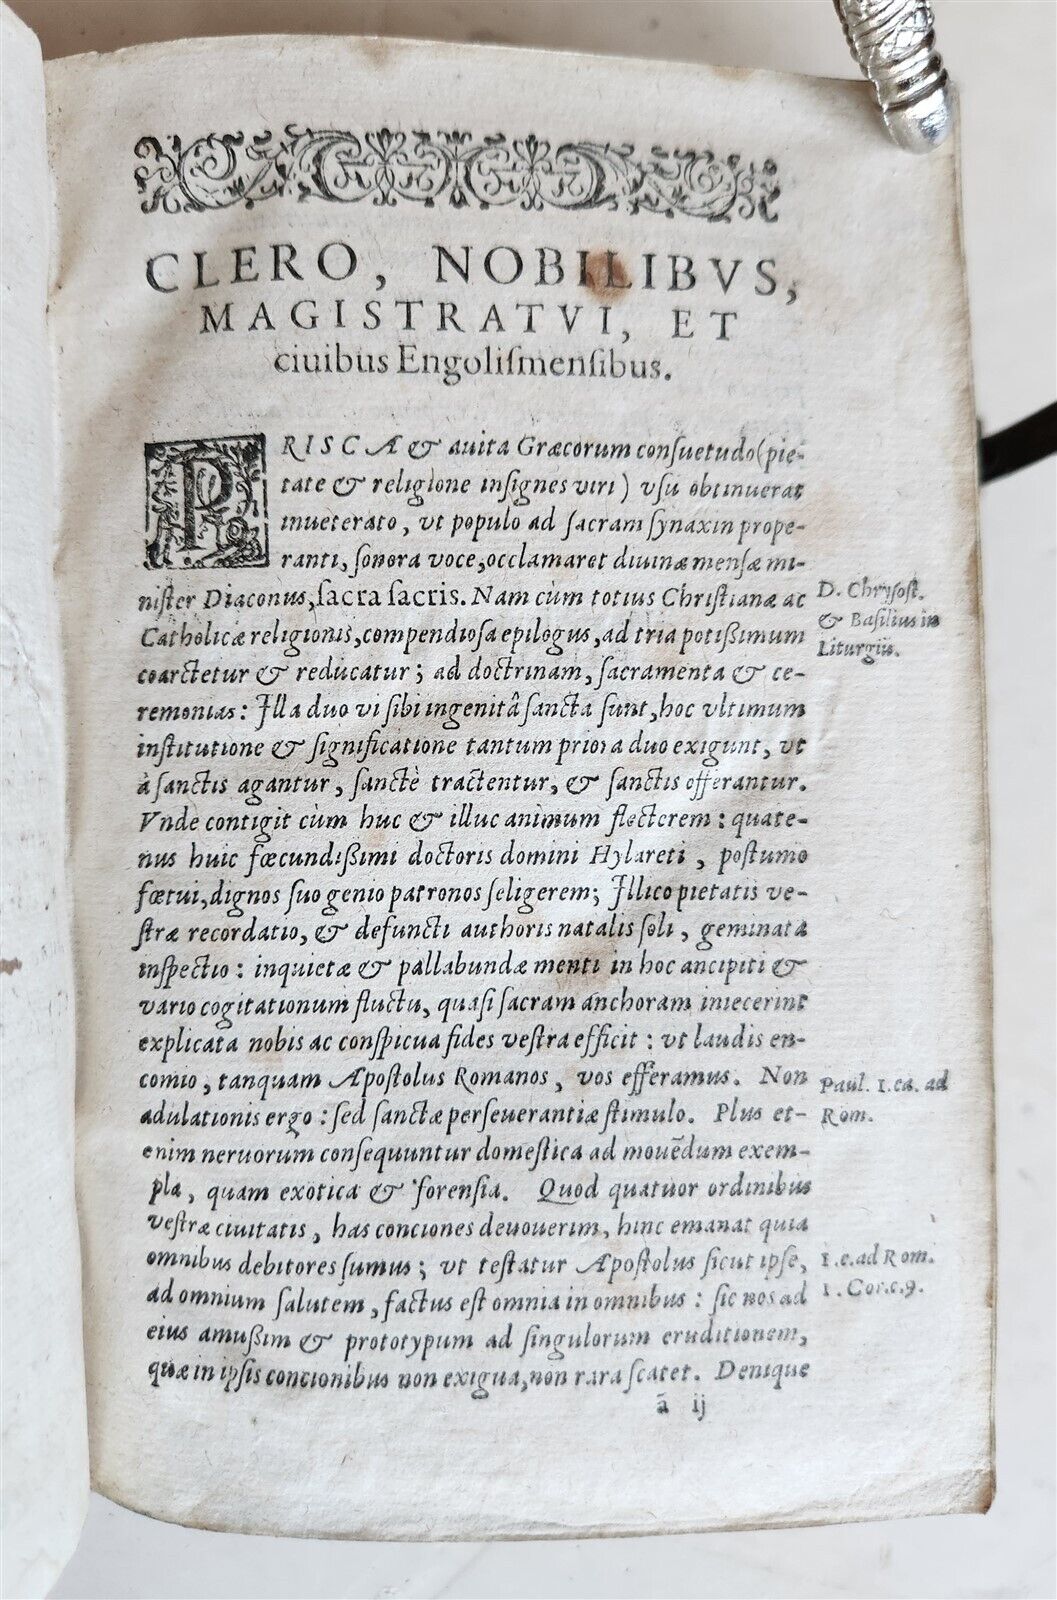 CLERO, NOBILIBVS,
MAGISTRATVI, ET
ciuibus Engoliſmenſibus.
PRISCA & auita Græcorum conſuetudo (pie-
tate & religione inſignes viri) vſu obtinuerat
inueterato, vt populo ad ſacram ſynaxin prope-
ranti, ſonora voce, occlamaret diuinæ menſæ mi-
niſter Diaconus, ſacra ſacris. Nam cùm totius Chriſtianæ ac
D. Chryſoſt.
& Baſilius in
Liturgiis.
Catholicæ religionis, compendioſa epilogus, ad tria potißimum
coarctetur & reducatur; ad doctrinam, ſacramenta & ce-
remonias: Illa duo vi ſibi ingenitâ ſancta ſunt, hoc vltimum
inſtitutione & ſignificatione tantum priora duo exigunt, vt
à ſanctis agantur, ſanctè tractentur, & ſanctis offerantur.
Vnde contigit cùm huc & illuc animum flecterem: quate-
nus huic fœcundißimi doctoris domini Hylareti, poſtumo
fœtui, dignos ſuo genio patronos ſeligerem; Illico pietatis ve-
ſtræ recordatio, & defuncti authoris natalis ſoli, geminata
inſpectio: inquietæ & pallabundæ menti in hoc ancipiti &
vario cogitationum fluctu, quaſi ſacram anchoram iniecerint
explicata nobis ac conſpicua fides veſtra efficit: vt laudis en-
comio, tanquam Apoſtolus Romanos, vos efferamus. Non
Paul. 1. ca. ad
Rom.
adulationis ergo: ſed ſanctæ perſeuerantiæ ſtimulo. Plus et-
enim neruorum conſequuntur domeſtica ad mouẽdum exem-
pla, quam exotica & forenſia. Quod quatuor ordinibus
veſtræ ciuitatis, has conciones deuouerim, hinc emanat quia
omnibus debitores ſumus; vt teſtatur Apoſtolus ſicut ipſe,
1. c. ad Rom.
1. Cor. c. 9.
ad omnium ſalutem, factus eſt omnia in omnibus: ſic nos ad
eius amußim & prototypum ad ſingulorum eruditionem,
quæ in ipſis concionibus non exigua, non rara ſcatet. Denique
ã ij